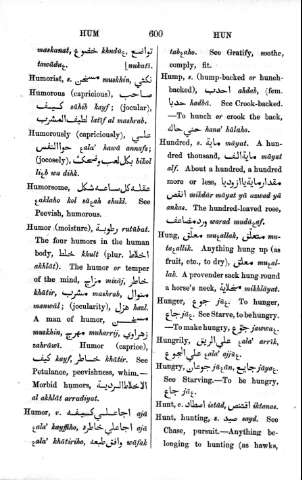 HUM 600 HUN
maskanat, خضوع khudu̱ع, تواضع
tawâduع. [nukatî.
Humorist, s. مسخن muskhin, نكتى
Humorous (capricious), صاحب
كيف sâhib kayf; (jocular),
لطيف المشرب latîf al mashrab.
Humorously (capriciously), على
هوا النفس عala' hawâ annafs;
(jocosely), بلعب وضحك bikol
liعb wa dihk.
Humorsome, عقله كل ساعه شكل
عaklaho kol sâعah shukl. See
Peevish, humorous.
Humor (moisture), رطوبة rutûbat.
The four humors in the human
body, خلط khult (plur. اخلاط
akhlât). The humor or temper
of the mind, مزاج mizâj, خاطر
khâtir, مشرب mashrab, منوال
manwâl; (jocularity), هزل hazl.
A man of humor,
muskhin, مهرج muharrij, زهراوى
zahrâwî. Humor (caprice),
كيف kayf, خاطر khâtir. See
Petulance, peevishness, whim.—
Morbid humors, الاخلاط الردية
al akhlât arradîyat.
Humor, v. اجا على كيفه ajâ
عala' kayfiho, اجا على خاطره ajâ
عala' khâtiriho, وافق طبعه wâfak
tabعaho. See Gratify, soothe,
comply, fit.
Hump, s. (hump-backed or hunch-
backed), احدب ahdab, (fem.
حدبا hadbâ. See Crook-backed.
—To hunch or crook the back,
حنى حاله hana' hâlaho.
Hundred, s. ماية mâyat. A hun-
dred thousand, ماية الف mâyat
alf. About a hundred, a hundred
more or less, مقدار ماية يا ازود يا
انقص mikdâr mâyat yâ azwad yâ
ankas. The hundred-leaved rose,
ورد مضاعف warad mudâعaf.
Hung, معلق muعallak, متعلق mu-
taعallik. Anything hung up (as
fruit, etc., to dry), معلق muعal-
lak. A provender sack hung round
a horse's neck, مخلاية mikhlâyat.
Hunger, جوع jûع. To hunger,
جاع jâع. See Starve, to be hungry.
—To make hungry, جوع jawwaع.
Hungrily, على الريق عala' arrîk,
على الجوع عala' ajjûع.
Hungry, جوعان jûعân, جايع jâyiع.
See Starving.—To be hungry,
جاع jâع.
Hunt, v. اصطاد istâd, اقتنص iktanas.
Hunt, hunting, s. صيد sayd. See
Chase, pursuit.—Anything be-
longing to hunting (as hawks,